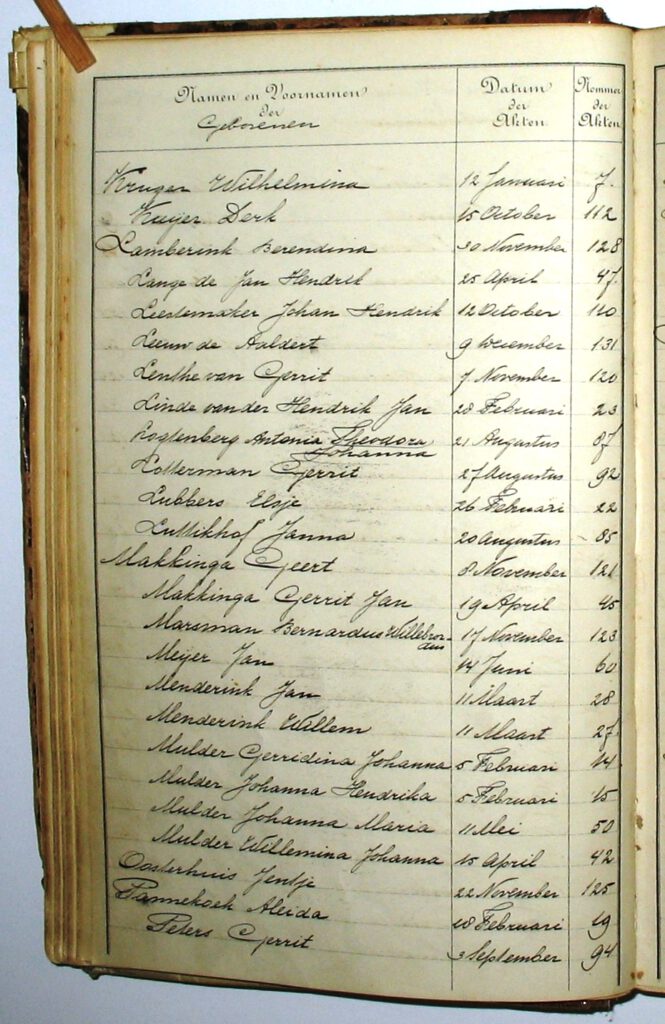 Namen en Voornamen Datum Nommer
der der der
Geborenen Akten Akten
Kruger Wilhelmina 12 Januari 7.
Kuijer Derk 15 October 112
Lamberink Berendina 30 November 128
Lange de Jan Hendrik 25 April 47.
Leestemaker Johan Hendrik 12 October 110
Leeuw de Aaldert 9 December 131
Lenthe van Gerrit 7 November 120
Linde van der Hendrik Jan 28 Februari 23
Logtenberg Antonia Theodora 21 Augustus 87
Johanna
Lotterman Gerrit 27 Augustus 92
Lubbers Elsje 26 Februari 22
Luttikhof Janna 20 Augustus 85
Makkinga Geert 8 November 121
Makkinga Gerrit Jan 19 April 45
Marsman Bernardus Willebror- 17 November 123
dus
Meijer Jan 14 Juni 60
Menderink Jan 11 Maart 28
Menderink Willem 11 Maart 27
Mulder Gerridina Johanna 5 Februari 14
Mulder Johanna Hendrika 5 Februari 15
Mulder Johanna Maria 11 Mei 50
Mulder Willemina Johanna 15 April 42
Oosterhuis Jentje 22 November 125
Pannekoek Aleida 18 Februari 19
Peters Gerrit 3 September 94